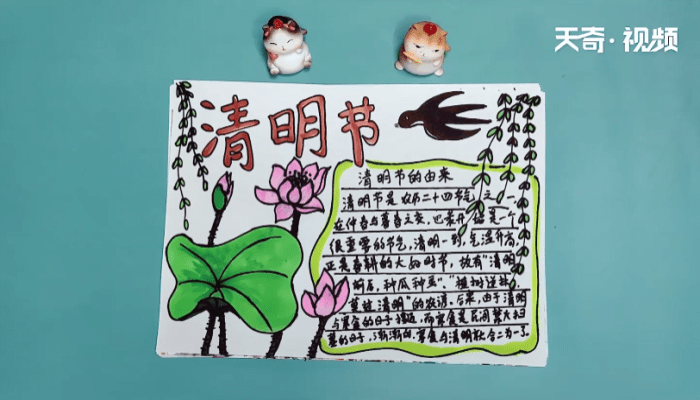 天奇·视频
清明节
清明节的由来
清明节是农历二十四节气之一,
在仲春与暮春之交,也是
很重要的节气,清明一到,气温升高,
正是春耕的大好时节,故有"清明
前后,种瓜种豆"。"植树造林,
莫过清明"的农谚。后来,由于清明
与寒食的日子接近,而寒食是民间禁火扫
墓的日子,渐渐的,寒食与清明就合二为一了